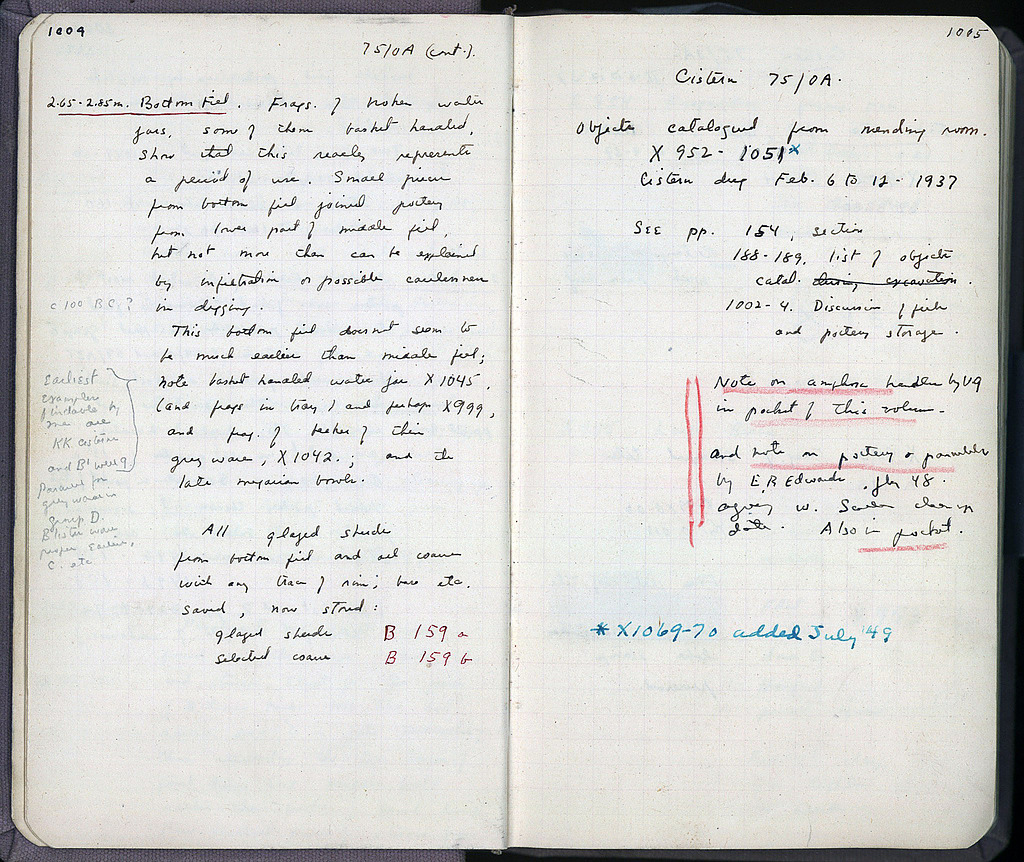 1004
75/0A (cont.).
2.65-2.85m. Bottom fill. Frags. of broken water
jars, some of them basket handled,
show that this really represents
a period of use. Small pieces
from bottom fill joined pottery
from lower part of middle fill,
but not more than can be explained
by infiltration or possible carelessness
c 100 B.C.?
in digging.
This bottom fill does not seem to
be much earlier than middle fill;
note basket handled water jar X 1045,
(and frags in tray) and perhaps X 999,
and frag. of beaker of thin
grey ware, X 1042.; and the
late megarian bowls.
Earliest
examples
findable by
me are
KK cistern
and B' well 9.
Parallel for
grey ware in
group D.
Blister ware
proper earlier,
C. etc.
All glazed sherds
from bottom fill and all coarse
with any trace of rim, base etc.
saved, now stored:
glazed sherds B 159 a
selected coarse B 159 b
1005
Cistern 75/0A.
Objects catalogued from mending room.
X 952 - 1051*
Cistern dug Feb. 6 to 12 - 1937
SEE pp. 154, section
188-189, list of objects
catal. during excavation.
1002-4. Discussion of fill
and pottery storage.
Note on amphora handles by VG
in pocket of this volume.
and note on pottery & parallels
by E.R Edwards, 48.
agrees w. closing
date. Also in pocket.
* X1069-70 added July '49